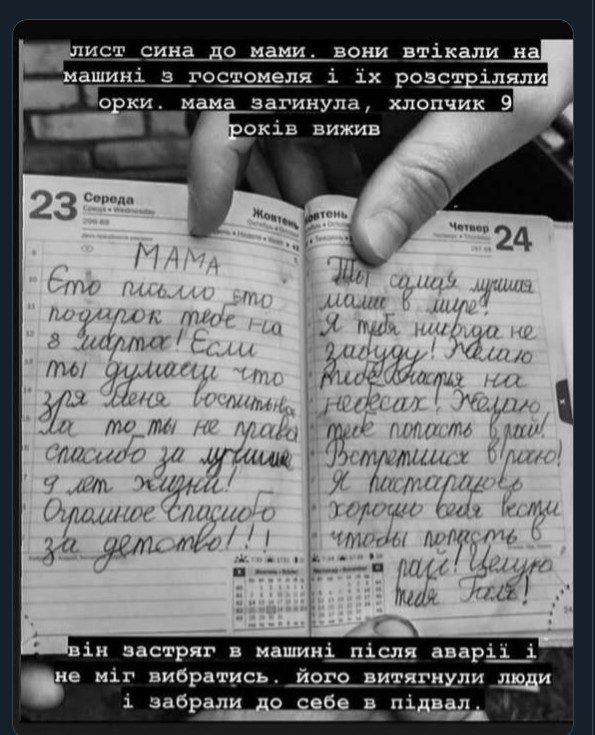 лист сина до мами. вони втікали на
машині з гостомеля і їх розстріляли
орки. мама загинула, хлопчик 9
років вижив
23 Середа
Середа • Wednesday
296-69
Жовтень
МАМА
Єто письмо єто
подарок тебе на
8 марта! Если
ты думаеш что
зря меня воспитыва
ла то ты не права
спасибо за лучшие
9 лет жизни!
Огромное спасибо
за детство!!!
Жовтень
Четвер 24
297-68
Ты самая лучшая
мама в мире!
Я тебя никогда не
забуду! Желаю
тебе счастья на
небесах! Желаю
тебе попасть в рай!
Встретимся в раю!
Я постараюсь
хорошо себя вести
чтобы попасть в
рай! Целую
тебя
він застряг в машині після аварії і
не міг вибратись. його витягнули люди
і забрали до себе в підвал.